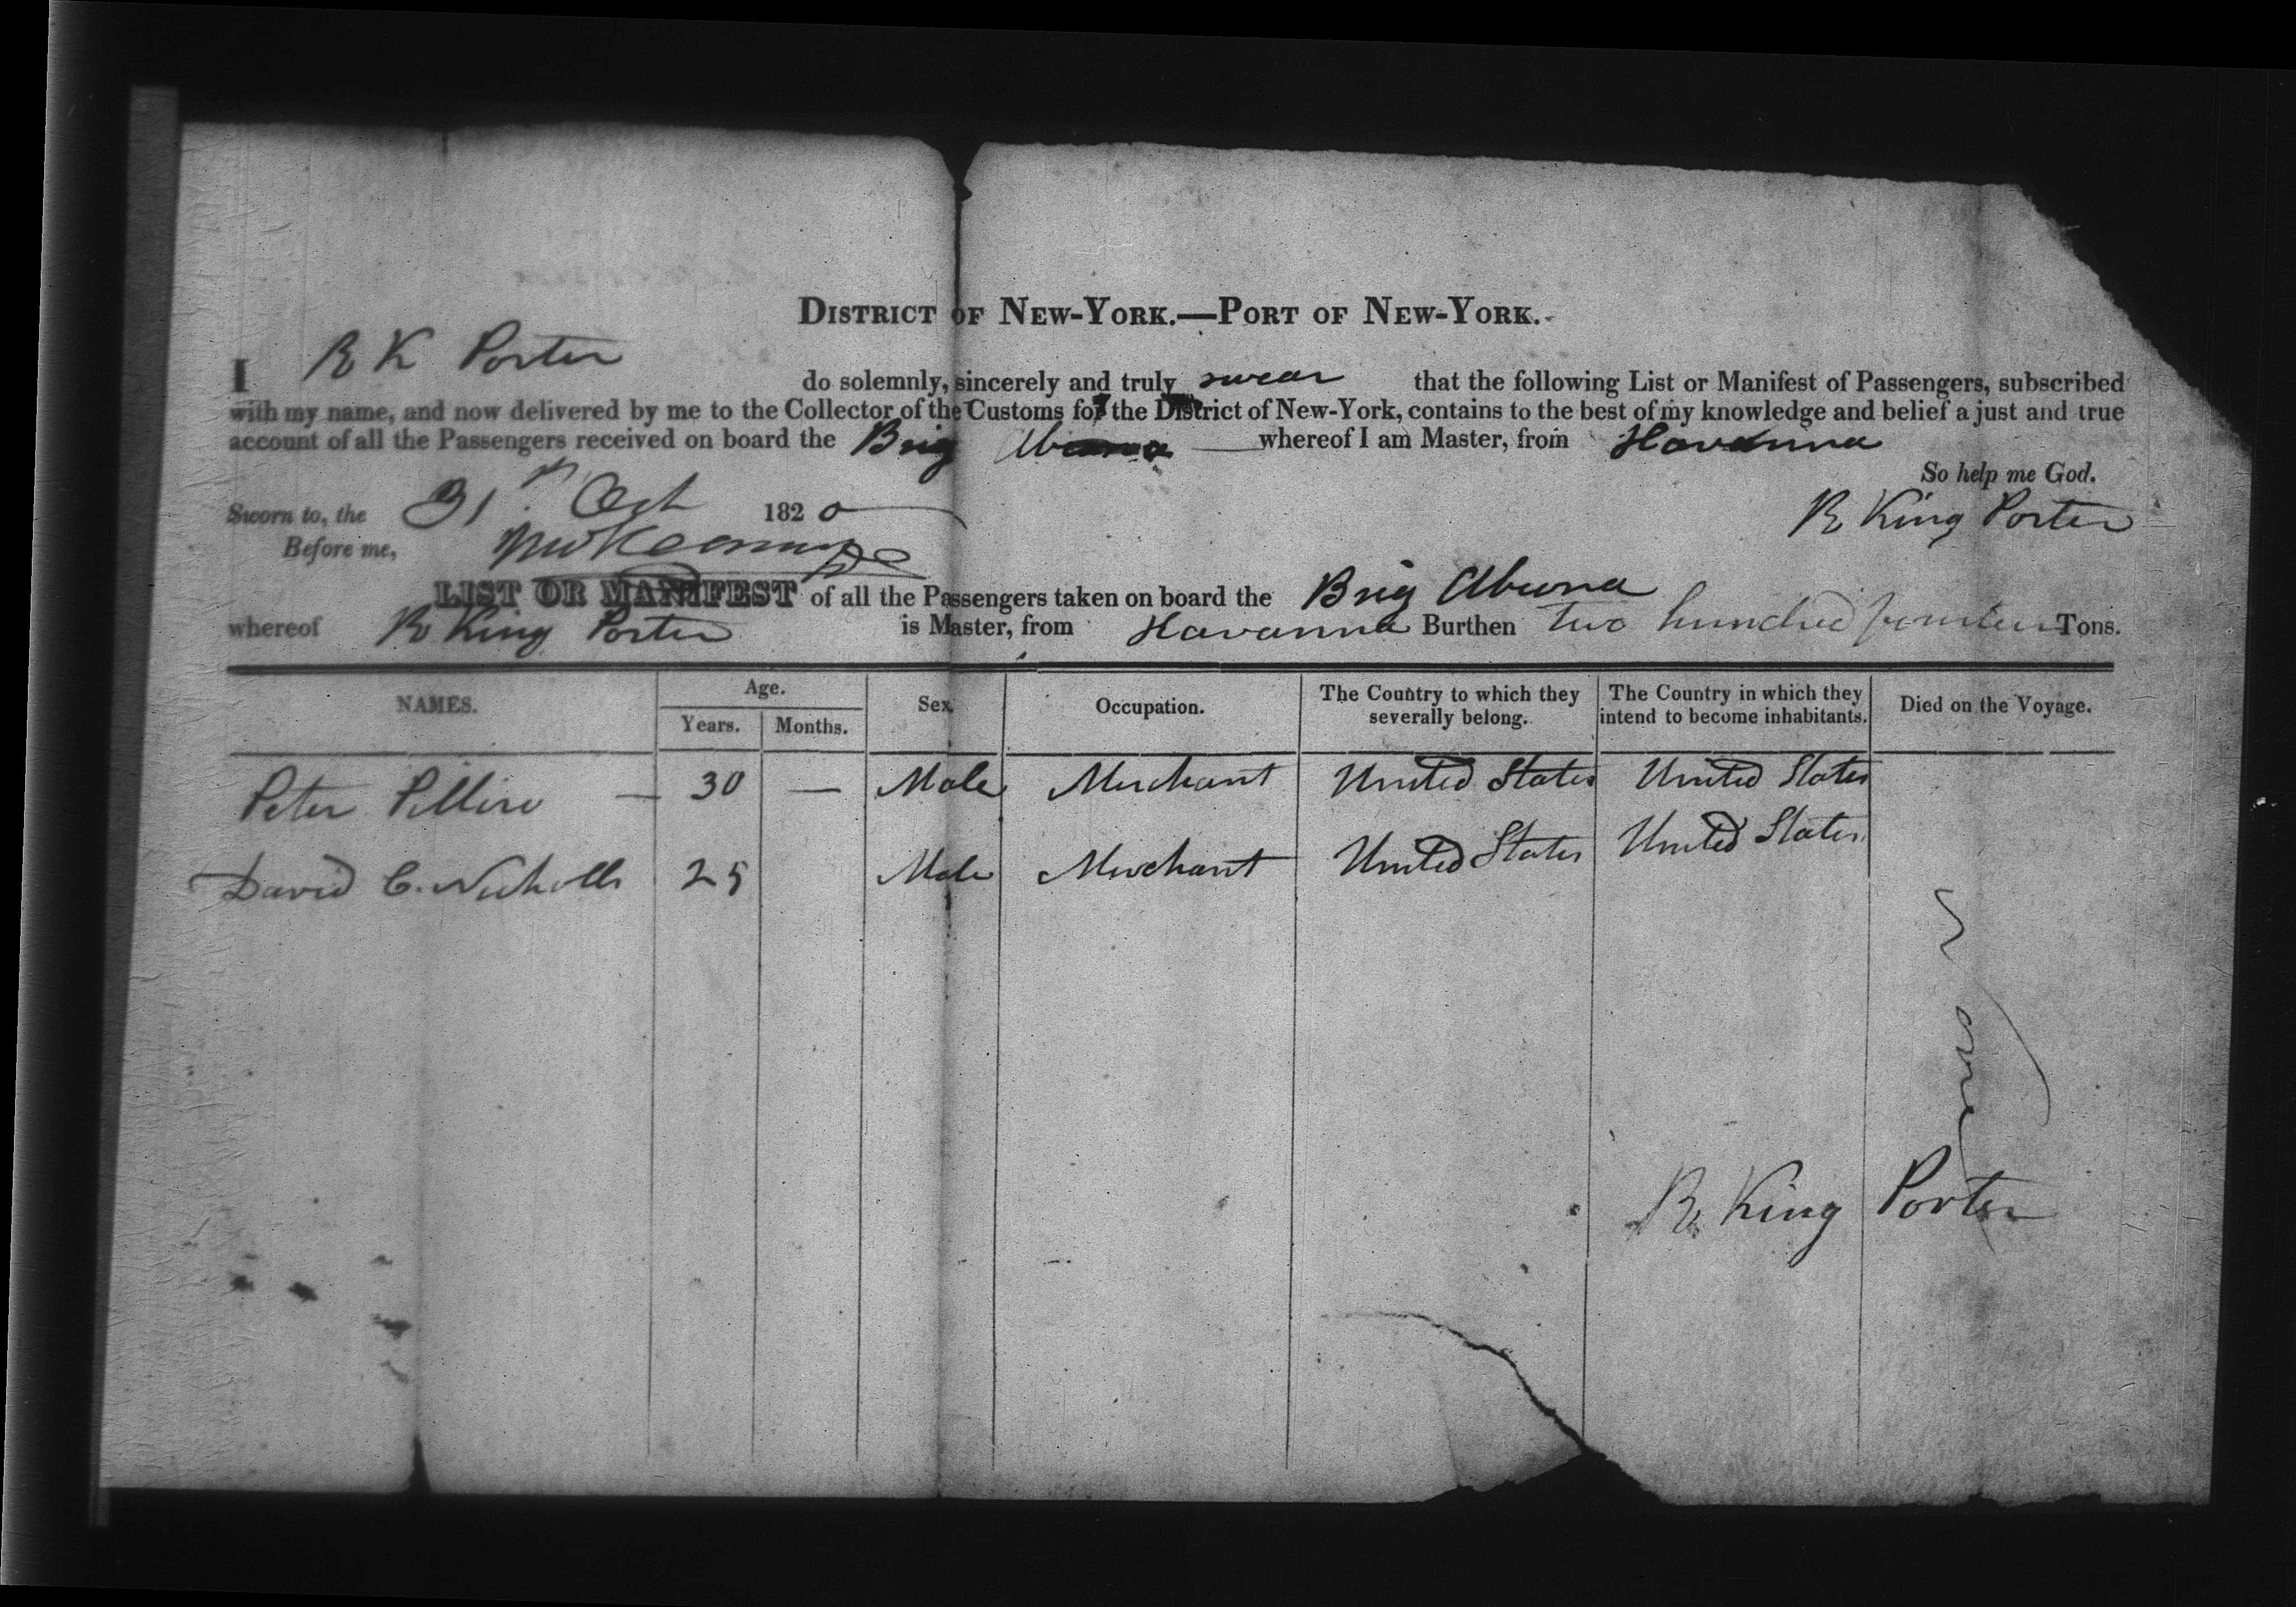 DISTRICT OF NEW-YORK.—PORT OF NEW-YORK.
I R K Porter do solemnly, sincerely and truly swear that the following List or Manifest of Passengers, subscribed
with my name, and now delivered by me to the Collector of the Customs for the District of New-York, contains to the best of my knowledge and belief a just and true
account of all the Passengers received on board the Brig Abeona whereof I am Master, from Havanna
So help me God.
Sworn to, the 31st Oct 1820
R King Porter
Before me,
LIST OR MANIFEST of all the Passengers taken on board the Brig Abeona
whereof R King Porter is Master, from Havanna Burthen two hundred fourteen Tons.
NAMES. Age. Years. Months. Sex. Occupation. The Country to which they severally belong. The Country in which they intend to become inhabitants. Died on the Voyage.
Peter Pillero — 30 — Male Merchant United States United States
David C. Nicholls 25 Male Merchant United States United States
R King Porter